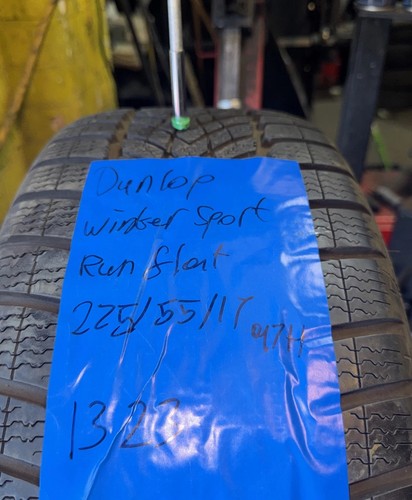 Dunlop
Winter Sport
Run flat
225/55/17
97H
13 23